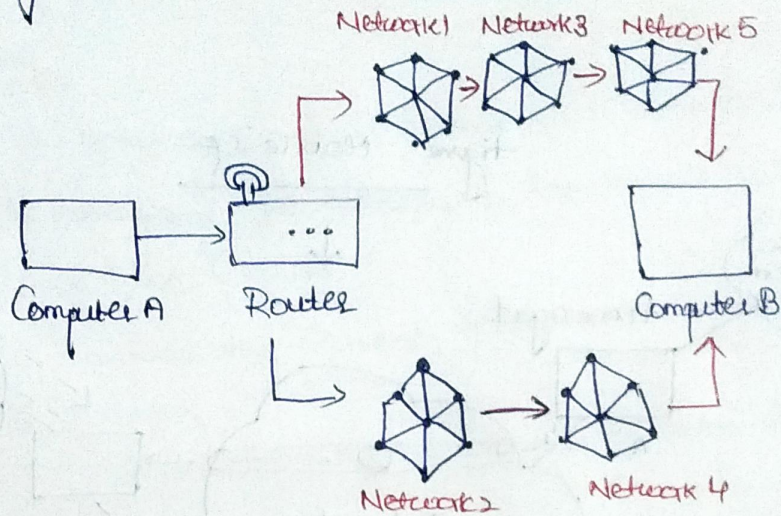 Network1 Network3 Network5
Computer A
Router
Computer B
Network2
Network 4